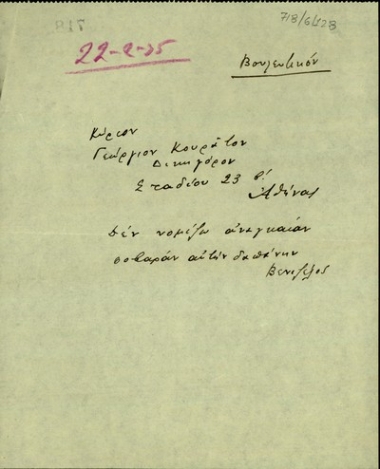 718/6/128
22-2-35
Βουλευτικόν
Κύριον
Γεώργιον Κουράτον
Δικηγόρον
Σταδίου 23 α'
Ἀθήνας
Δέν νομίζω ἀναγκαίαν
σοβαράν αὐτήν δαπάνην
Βενιζέλος